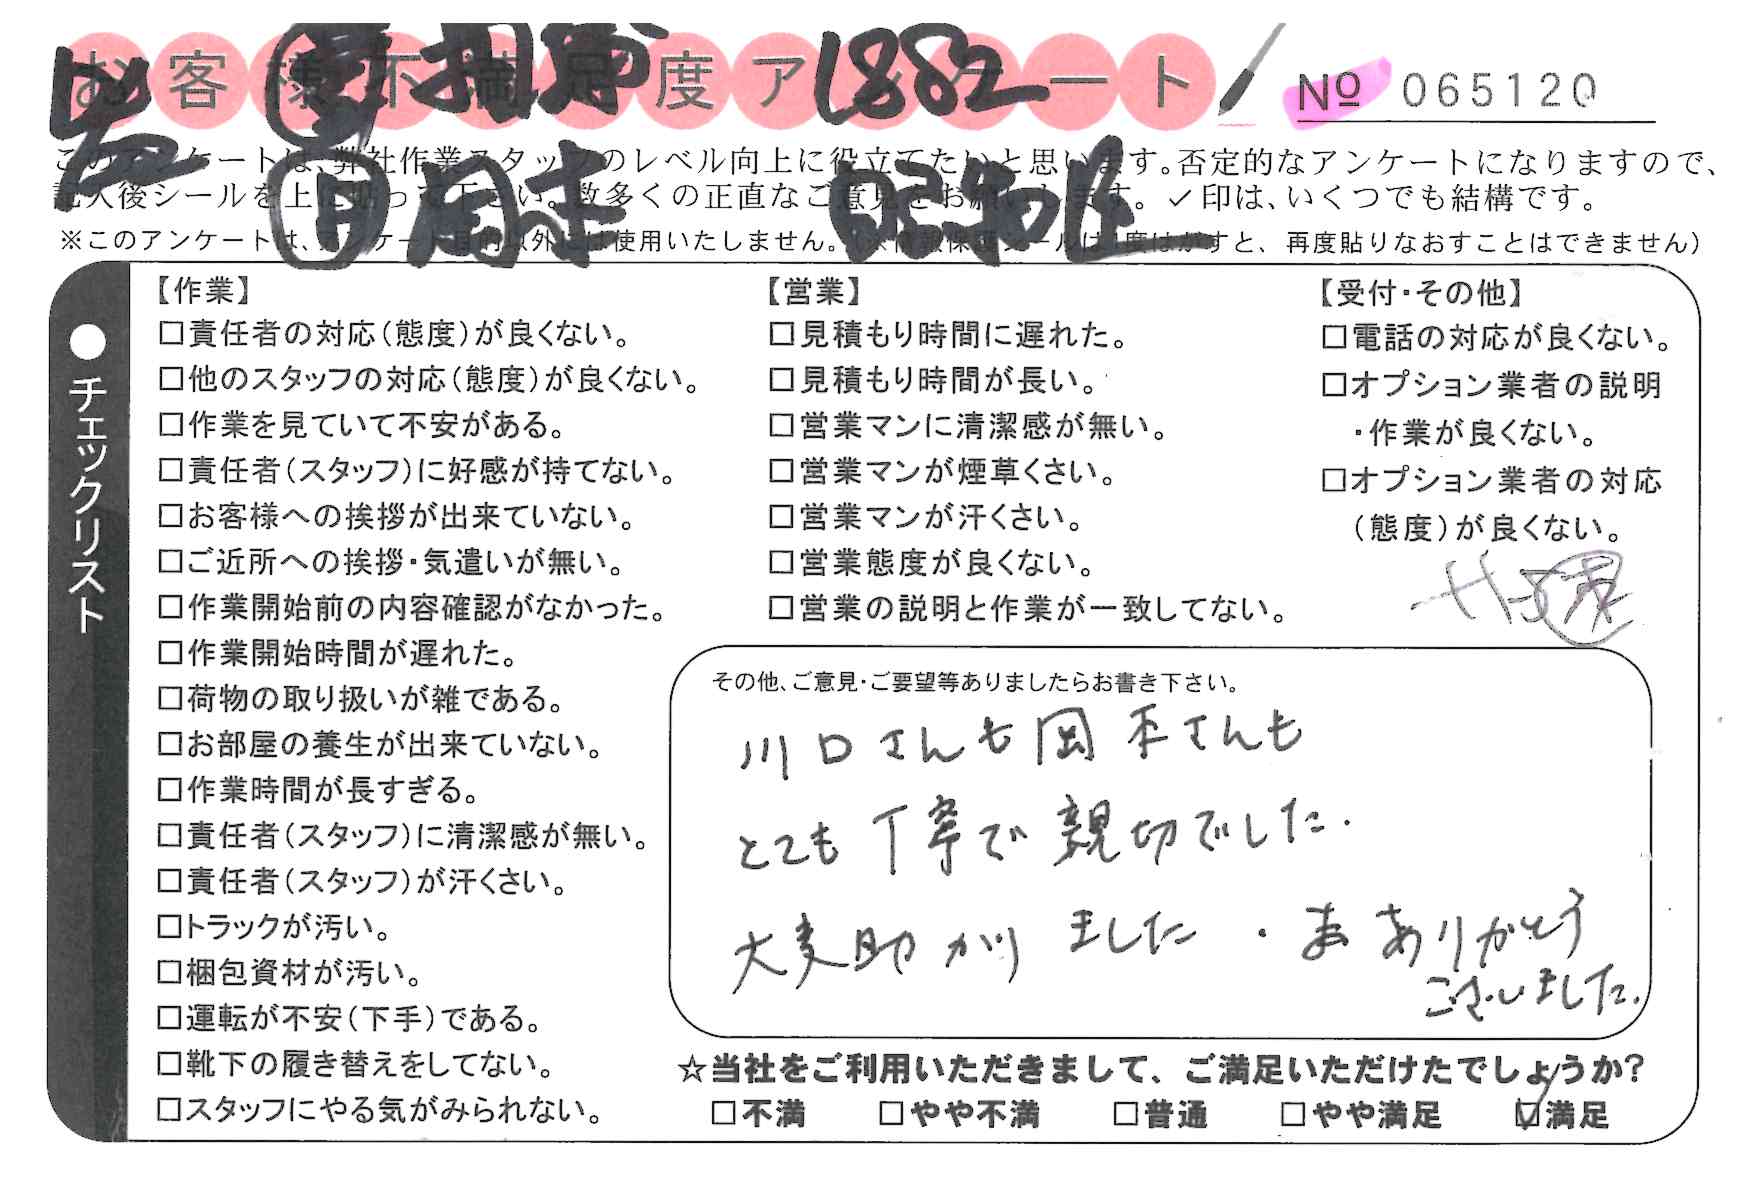 お客様不満足度アンケート
1882
№ 065120
このアンケートは、弊社作業スタッフのレベル向上に役立てたいと思います。否定的なアンケートになりますので、
記入後シールを上に貼って下さい。数多くの正直なご意見をお願いします。✓印は、いくつでも結構です。
※このアンケートは、アンケート目的以外には使用いたしません。(※情報保護シールは1度はがすと、再度貼りなおすことはできません)
●チェックリスト
【作業】
□責任者の対応(態度)が良くない。
□他のスタッフの対応(態度)が良くない。
□作業を見ていて不安がある。
□責任者(スタッフ)に好感が持てない。
□お客様への挨拶が出来ていない。
□ご近所への挨拶・気遣いが無い。
□作業開始前の内容確認がなかった。
□作業開始時間が遅れた。
□荷物の取り扱いが雑である。
□お部屋の養生が出来ていない。
□作業時間が長すぎる。
□責任者(スタッフ)に清潔感が無い。
□責任者(スタッフ)が汗くさい。
□トラックが汚い。
□梱包資材が汚い。
□運転が不安(下手)である。
□靴下の履き替えをしてない。
□スタッフにやる気がみられない。
【営業】
□見積もり時間に遅れた。
□見積もり時間が長い。
□営業マンに清潔感が無い。
□営業マンが煙草くさい。
□営業マンが汗くさい。
□営業態度が良くない。
□営業の説明と作業が一致してない。
【受付・その他】
□電話の対応が良くない。
□オプション業者の説明
・作業が良くない。
□オプション業者の対応
(態度)が良くない。
その他、ご意見・ご要望等ありましたらお書き下さい。
川口さんも岡本さんも
とても丁寧で親切でした.
大変助かりました.ありがとう
ございました.
☆当社をご利用いただきまして、ご満足いただけたでしょうか?
□不満 □やや不満 □普通 □やや満足 ☑満足